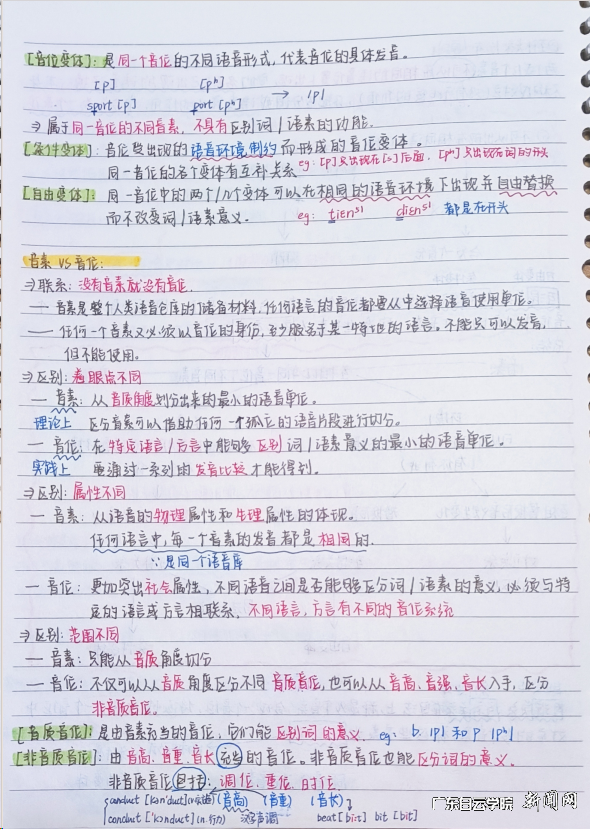 [音位变体]: 是同一个音位的不同语音形式, 代表音位的具体发音。
[p] [pʰ]
sport [p] port [pʰ] → /p/
⇒ 属于同一音位的不同音素, 不具有区别词/语素的功能.
[条件变体]: 音位受出现的语音环境制约而形成的音位变体。
同一音位的各个变体有互补关系 eg: [p]只出现在[s]后面, [pʰ]只出现在词的开头
[自由变体]: 同一音位中的两个/几个变体可以在相同的语音环境下出现并自由替换
而不改变词/语素意义. eg: tiens¹ diens¹ 都是在开头
音素 VS 音位:
⇒联系: 没有音素就没有音位.
— 音素是整个人类语音仓库的储备材料, 任何语言的音位都要从中选择语音使用单位。
— 任何一个音素又必须以音位的身份, 服务于某一特定的语言。不能只可以发音,
但不能使用。
⇒区别: 着眼点不同
— 音素: 从音质角度划分出来的最小的语音单位。
理论上 区分音素可以借助任何一个孤立的语音片段进行切分。
— 音位: 在特定语言/方言中能够区别词/语素意义的最小的语音单位。
实践上 要通过一系列的发音比较才能得到。
⇒区别: 属性不同
— 音素: 从语音的物理属性和生理属性的体现。
任何语言中, 每一个音素的发音都是相同的.
∵是同一个语音库
— 音位: 更加突出社会属性, 不同语音之间是否能够区分词/语素的意义, 必须与特
定的语言或方言相联系, 不同语言, 方言有不同的音位系统
⇒区别: 范围不同
— 音素: 只能从音质角度切分
— 音位: 不仅可以从音质角度区分不同音质音位, 也可以从音高、音强、音长入手, 区分
非音质音位。
[音质音位]: 是由音素充当的音位, 它们能区别词的意义 eg: b. /p/ 和 p /pʰ/
[非音质音位]: 由音高、音重、音长充当的音位。非音质音位也能区分词的意义.
非音质音位包括: 调位、重位、时位.
conduct [kən'dʌct] (音高) (音重) (音长)
conduct ['kɔndʌct] (n.行为) 汉语声调 beat [bi:t] bit [bit]
广东白云学院 新闻网